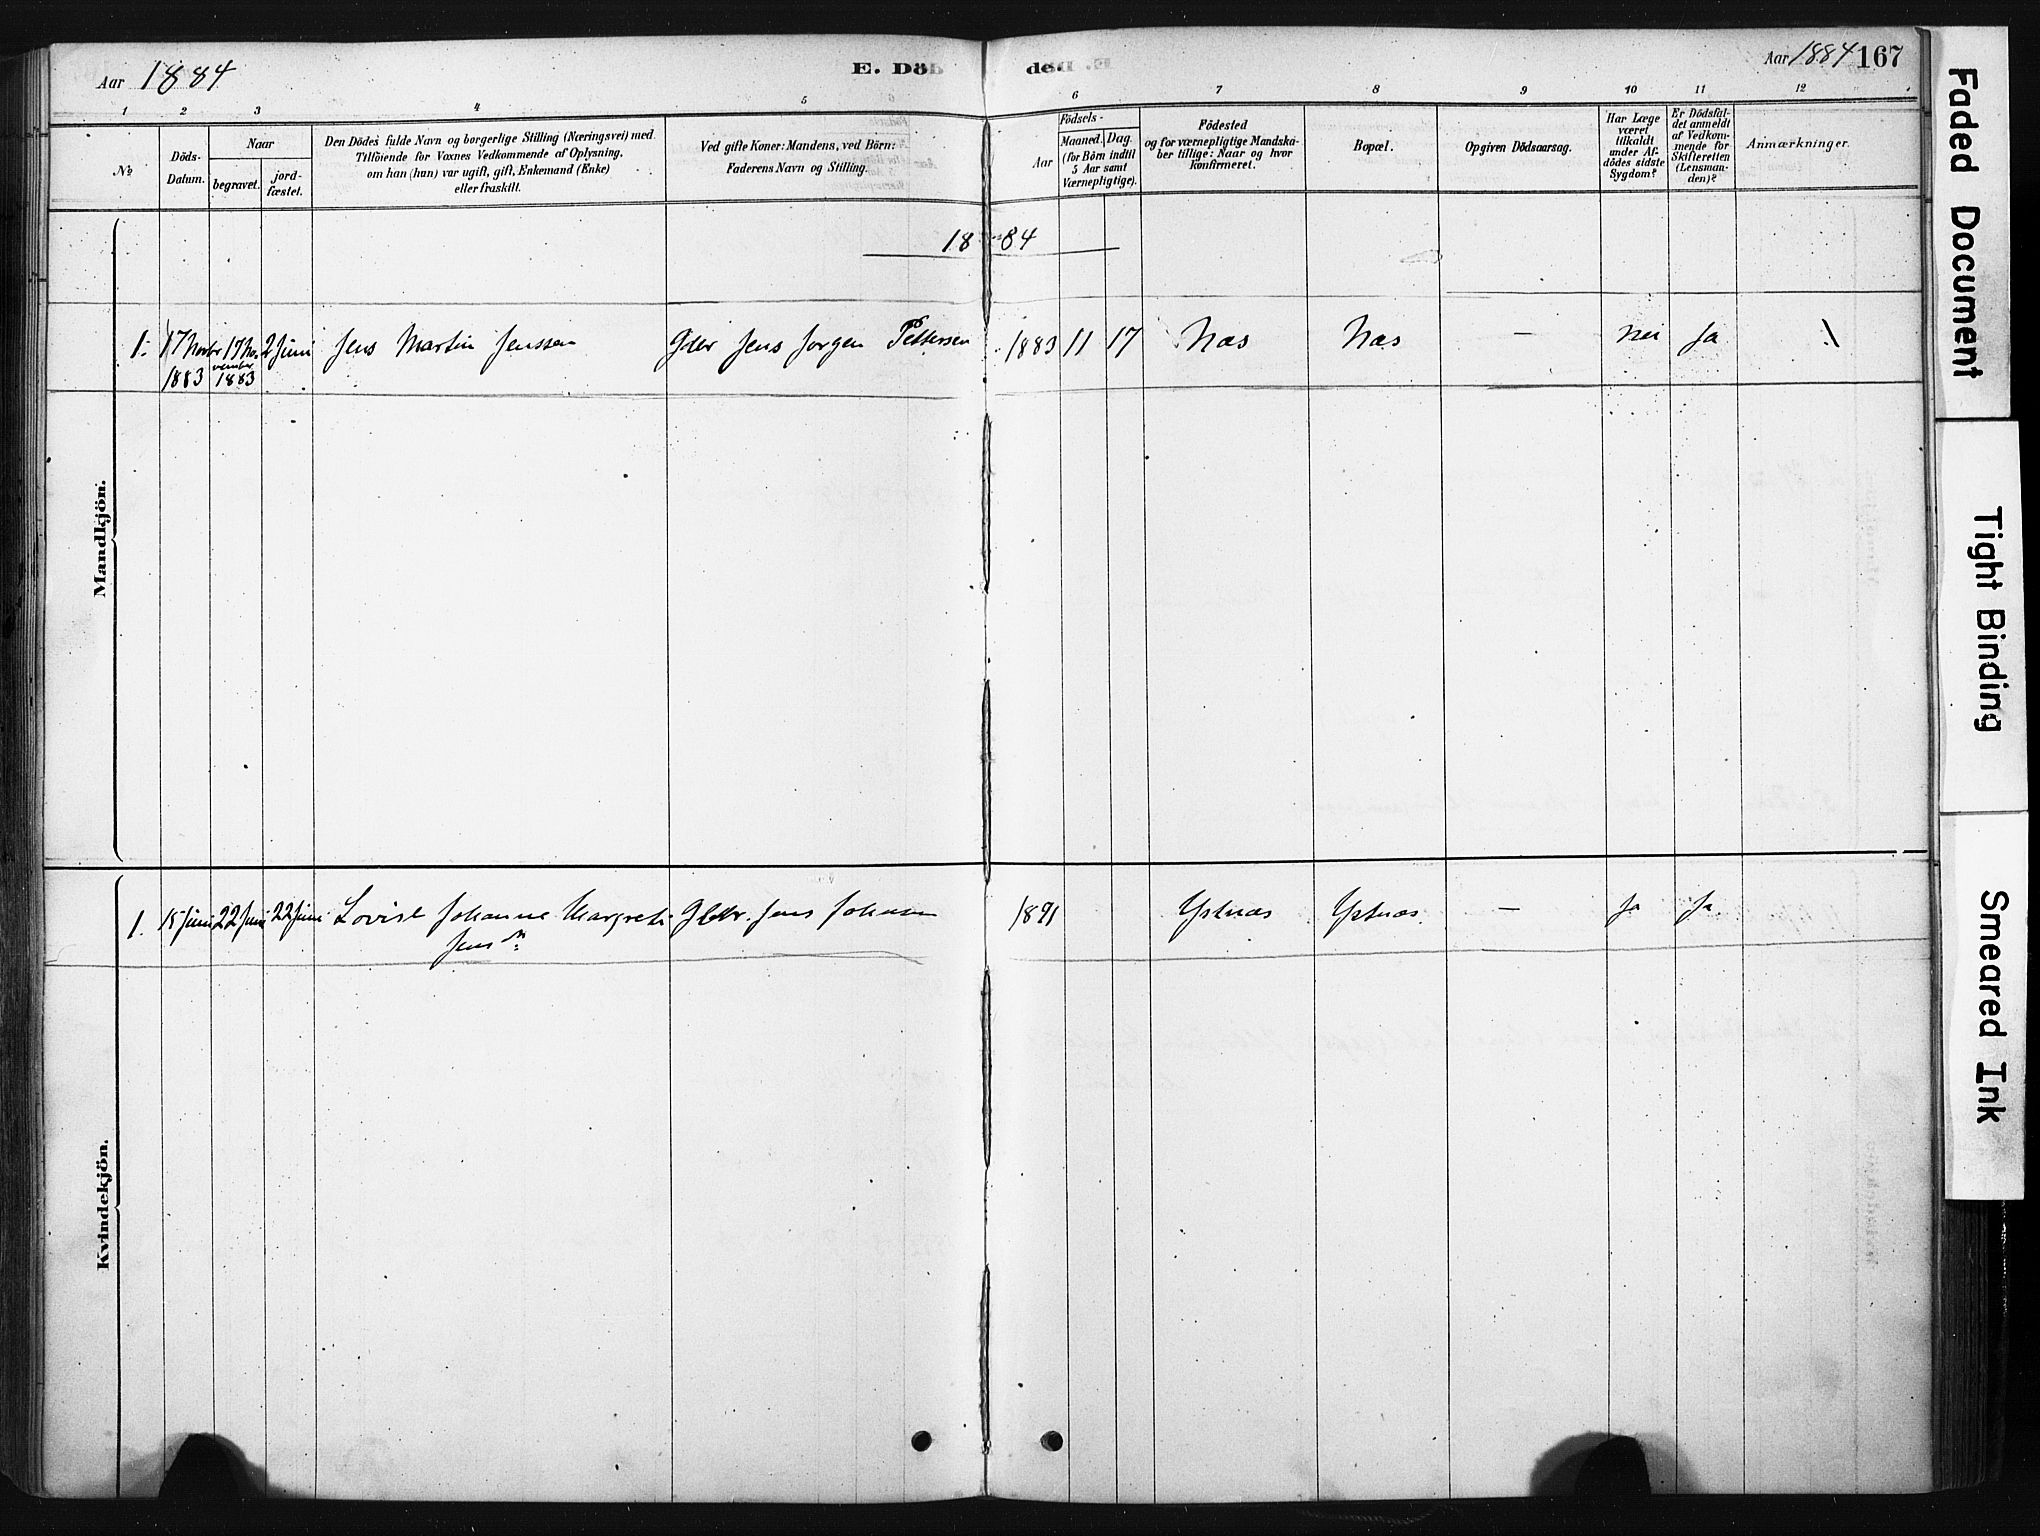 Aar 1884
E. Dö
de.
Aar 1884 167
1 2 3 4 5 6 7 8 9 10 11 12
№
Döds-
Datum.
Naar
begravet.
jord-
fæstet.
Den Dödes fulde Navn og borgerlige Stilling (Næringsvei) med
Tilföiende for Voxnes Vedkommende af Oplysning,
om han (hun) var ugift, gift, Enkemand (Enke)
eller fraskilt.
Ved gifte Koner: Mandens, ved Börn:
Faderens Navn og Stilling.
Födsels-
Aar
Maaned. Dag.
(for Börn indtil
5 Aar samt
Værnepligtige).
Födested
og for værnepligtige Mandska-
ber tillige: Naar og hvor
konfirmeret.
Bopæl.
Opgiven Dödsaarsag.
Har Læge
været
tilkaldt
under Af-
dödes sidste
Sygdom?
Er Dödsfal-
det anmeldt
af Vedkom-
mende for
Skifteretten
(Lensman-
den)?
Anmærkninger.
Mandkjön.
1884
1. 17 Novbr 17 No- 2 Juni Jens Martin Jenssen Gdbr Jens Jorgen Pettersen 1883 11 17 Næs Næs — nei Ja
1883 vember
1883
Kvindekjön.
1. 15 Juni 22 Juni 22 Juni Lovise Johanne Margrete Gdbr. Jens Johnsen Ystnæs Ystnæs — Ja Ja
Jensdr
Faded Document
Tight Binding
Smeared Ink